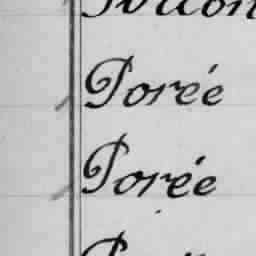 Porée
Porée